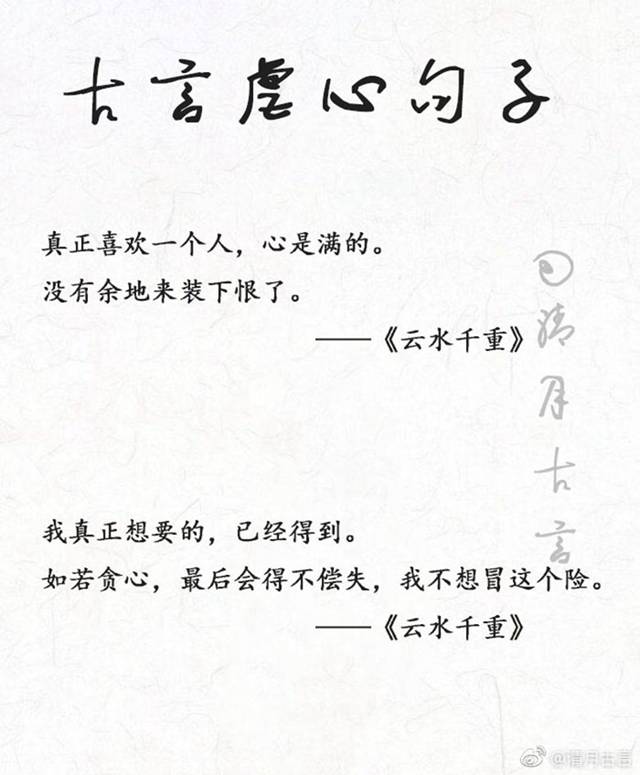 古言虐心句子
真正喜欢一个人，心是满的。
没有余地来装下恨了。
——《云水千重》
我真正想要的，已经得到。
如若贪心，最后会得不偿失，我不想冒这个险。
——《云水千重》
晴月古言